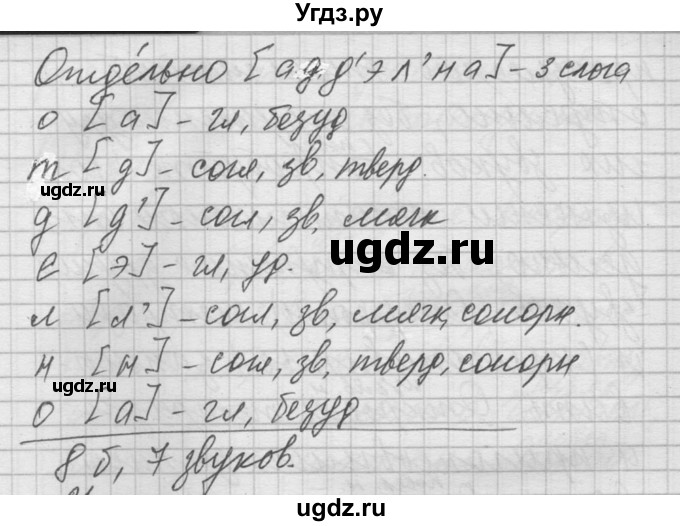 Угдз.ру
Отде́льно [адд'эл'на] - 3 слога
о [а] - гл, безуд
т [д] - согл, зв, тверд.
ugdz.ru
д [д'] - согл, зв, мягк
ugdz.ru
е [э] - гл, уд.
л [л'] - согл, зв, мягк, сонорн.
н [н] - согл, зв, тверд, сонорн
ugdz.ru
о [а] - гл, безуд
8 б, 7 звуков.
ugdz.ru
ugdz.ru